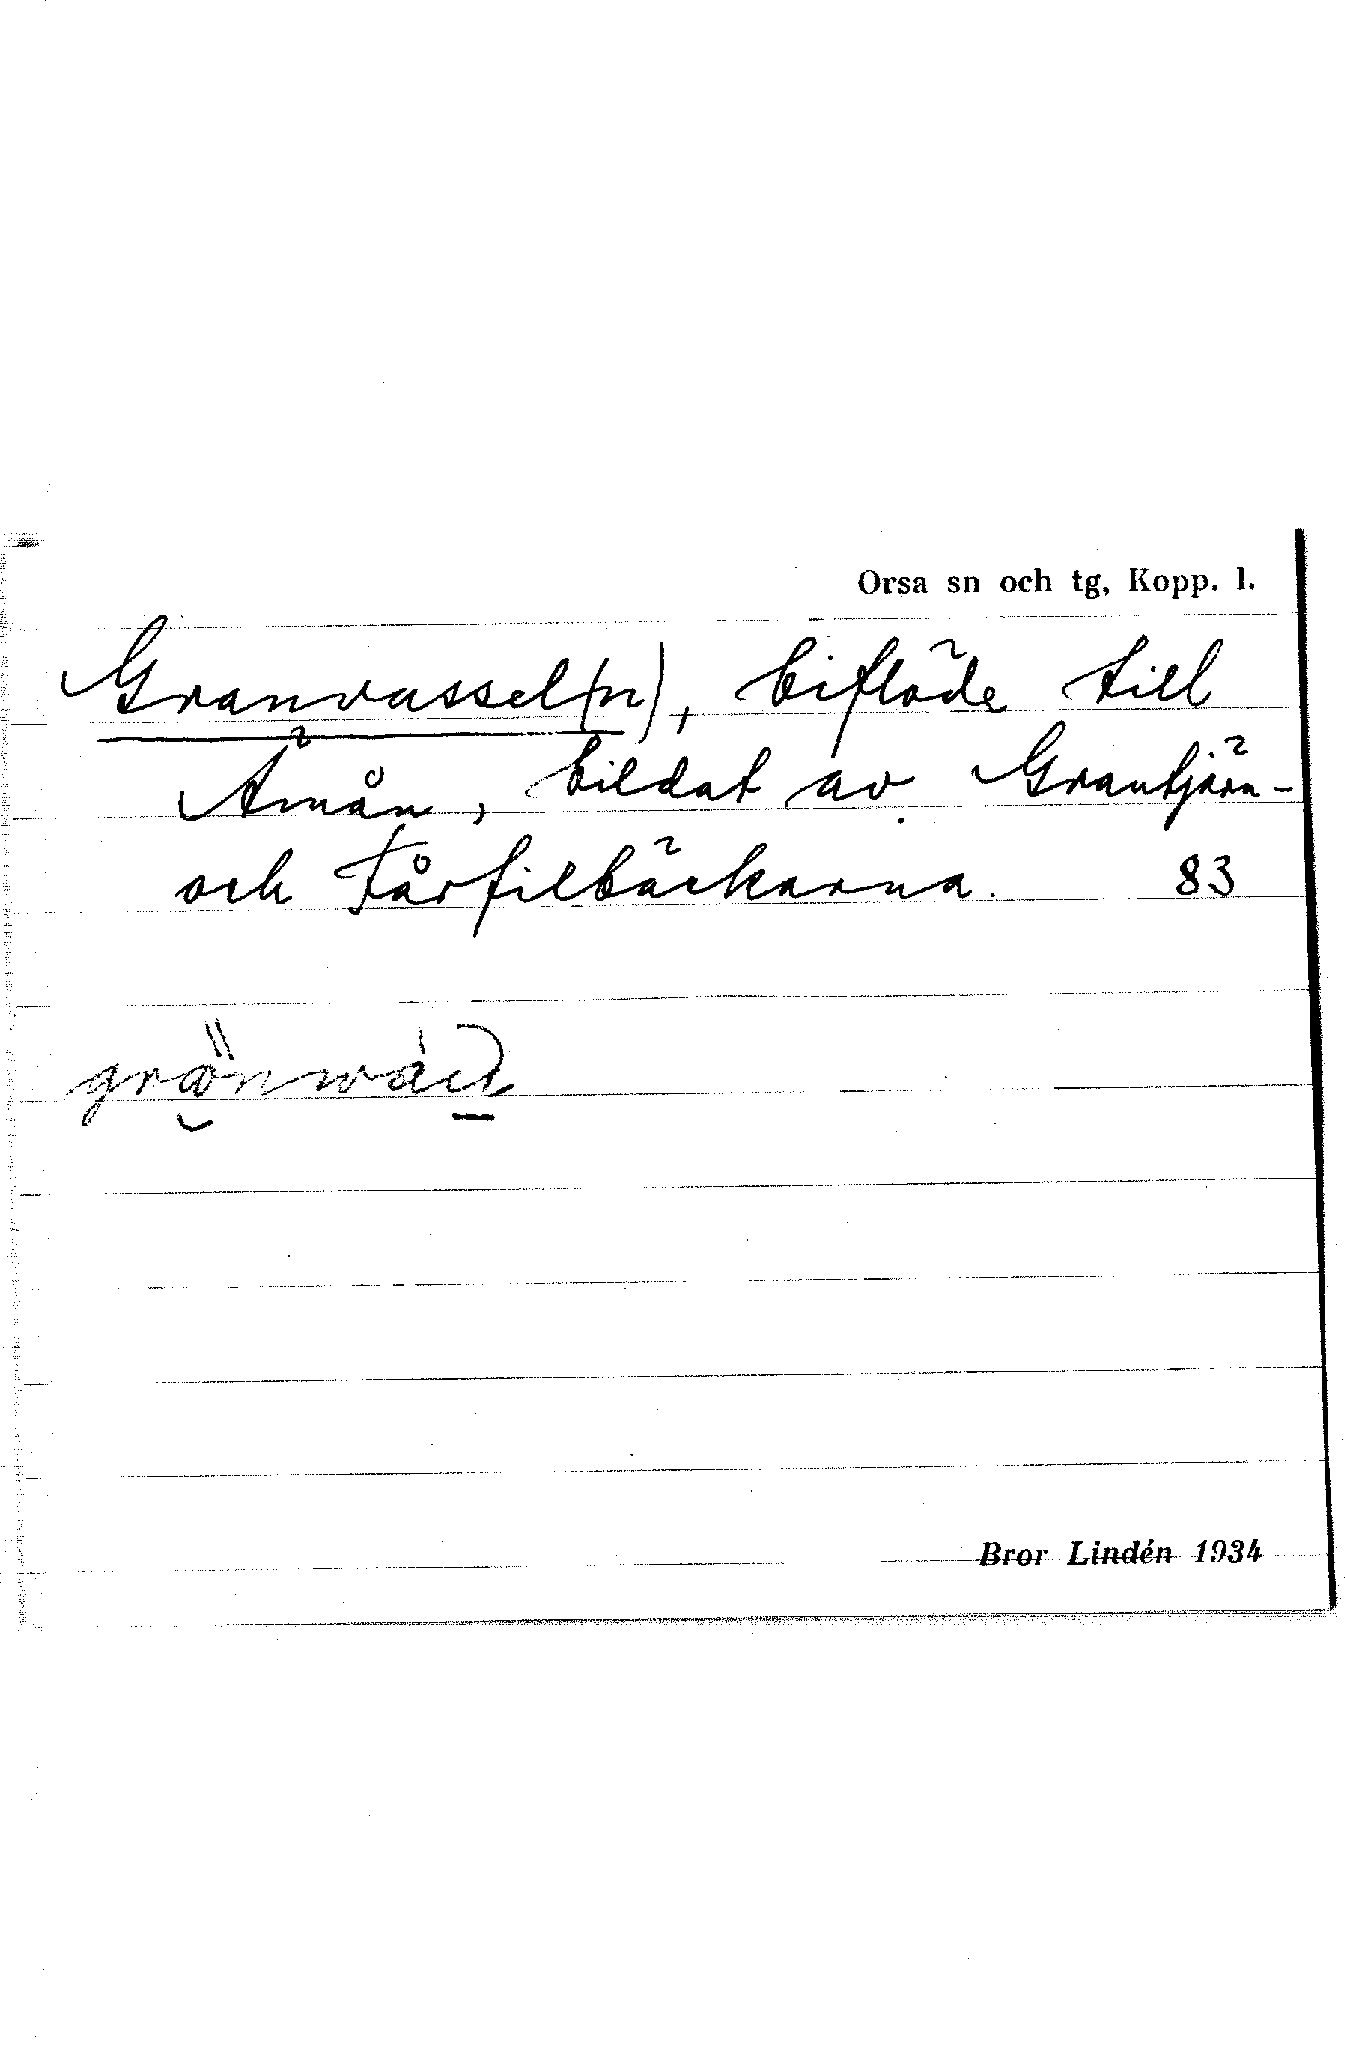 Orsa sn och tg, Kopp. l.
Granvassel(n), biflöde till
Ämån, bildat av Grantjärn-
och Fårfilbäckarna. 83
Bror Lindén 1934